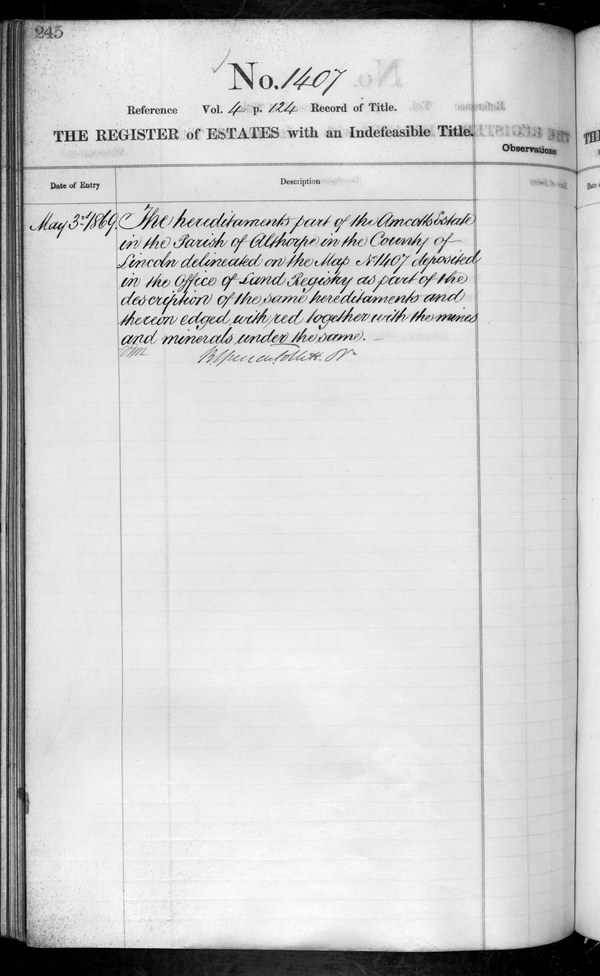 245
No. 1407
Reference Vol. 4 p. 124 Record of Title.
THE REGISTER of ESTATES with an Indefeasible Title.
Observations
Date of Entry
Description
May 3rd 1869.
The hereditaments part of the Amcotts Estate
in the Parish of Althorpe in the County of
Lincoln delineated on the Map No 1407 deposited
in the Office of Land Registry as part of the
description of the same hereditaments and
thereon edged with red together with the mines
and minerals under the same.